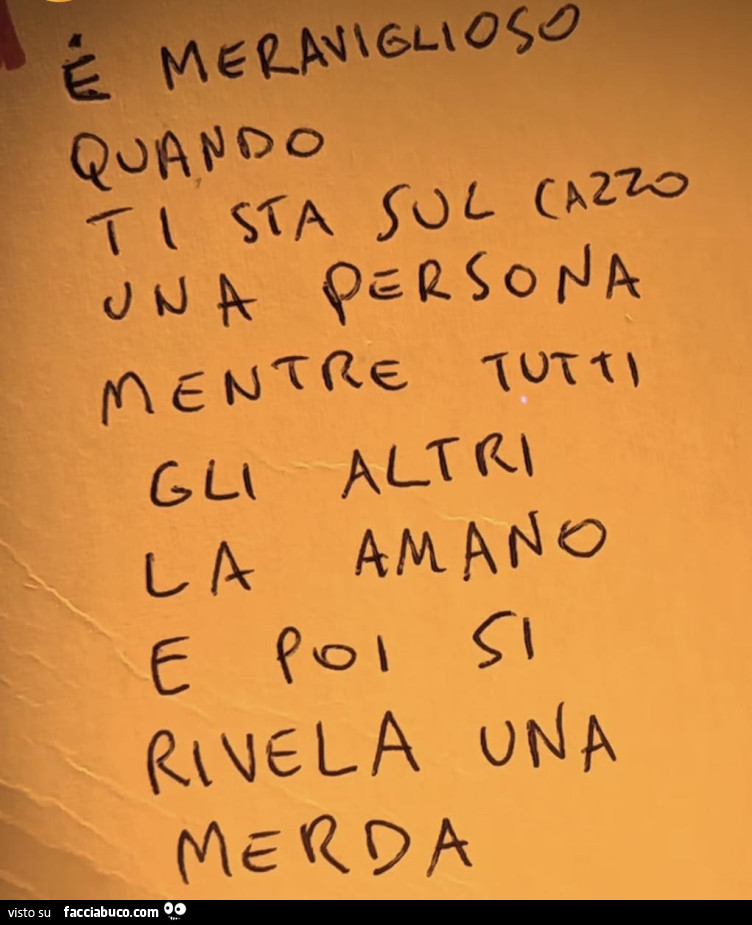 È MERAVIGLIOSO
QUANDO
TI STA SUL CAZZO
UNA PERSONA
MENTRE TUTTI
GLI ALTRI
LA AMANO
E POI SI
RIVELA UNA
MERDA
visto su facciabuco.com